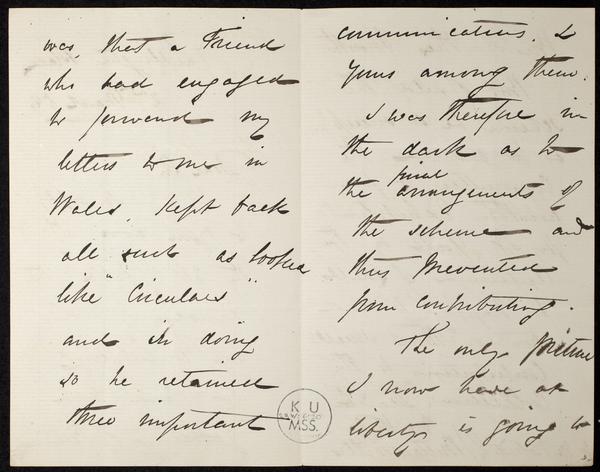 was, that a Friend
who had engaged
to forward my
letters to me in
Wales, kept back
all such as looked
like "Circulars"
and in doing
so he retained
three important
K U
MSS.
communications. &
yours among them.
I was therefore in
the dark as to
final
the arrangements of
the scheme and
thus prevented
from contributing.
The only picture
I now have at
liberty is going to